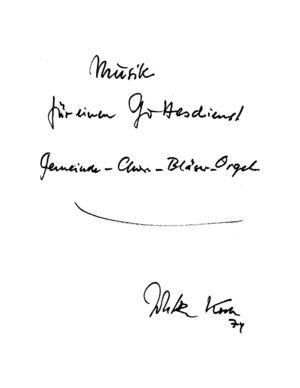 Musik
für einen Gottesdienst
Gemeinde - Chor - Bläser - Orgel
74